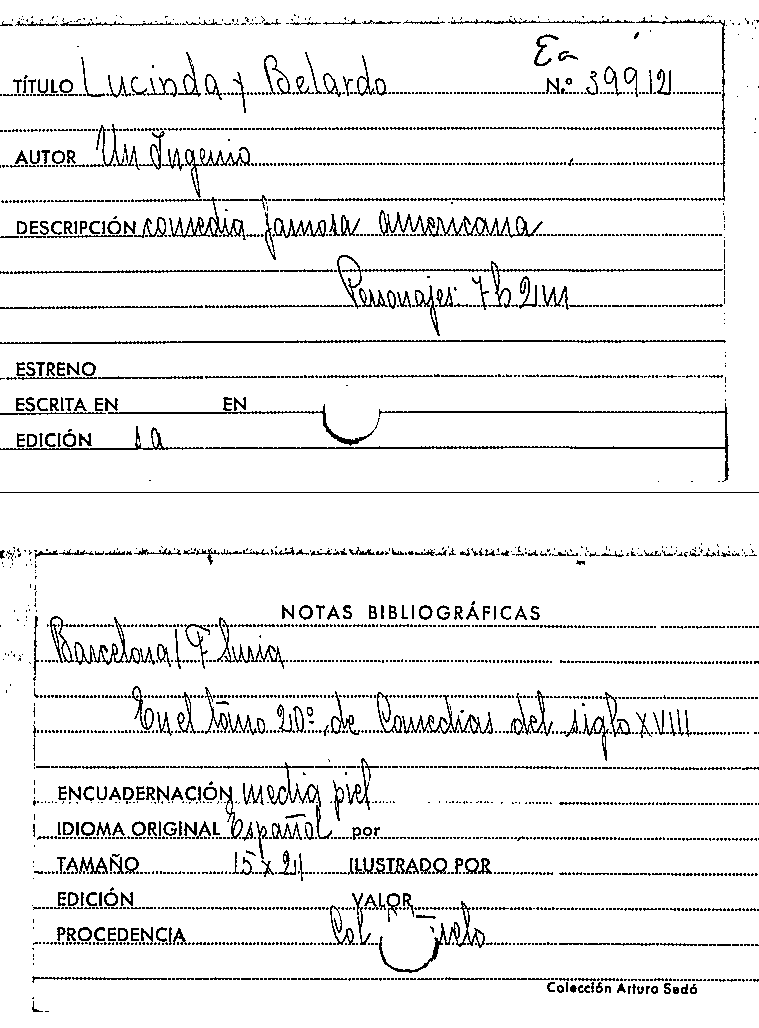 Ea
TÍTULO Lucinda y Belardo N.º 399121
AUTOR Un Ingenio
DESCRIPCIÓN comedia famosa americana
Personajes: 7h 2m
ESTRENO
ESCRITA EN EN
EDICIÓN 1a
NOTAS BIBLIOGRÁFICAS
Barcelona / F Suria
En el tomo 20º de Comedias del siglo XVIII
ENCUADERNACIÓN media piel
IDIOMA ORIGINAL Español por
TAMAÑO 15 x 21 ILUSTRADO POR
EDICIÓN VALOR
PROCEDENCIA Col
Colección Arturo Sedó